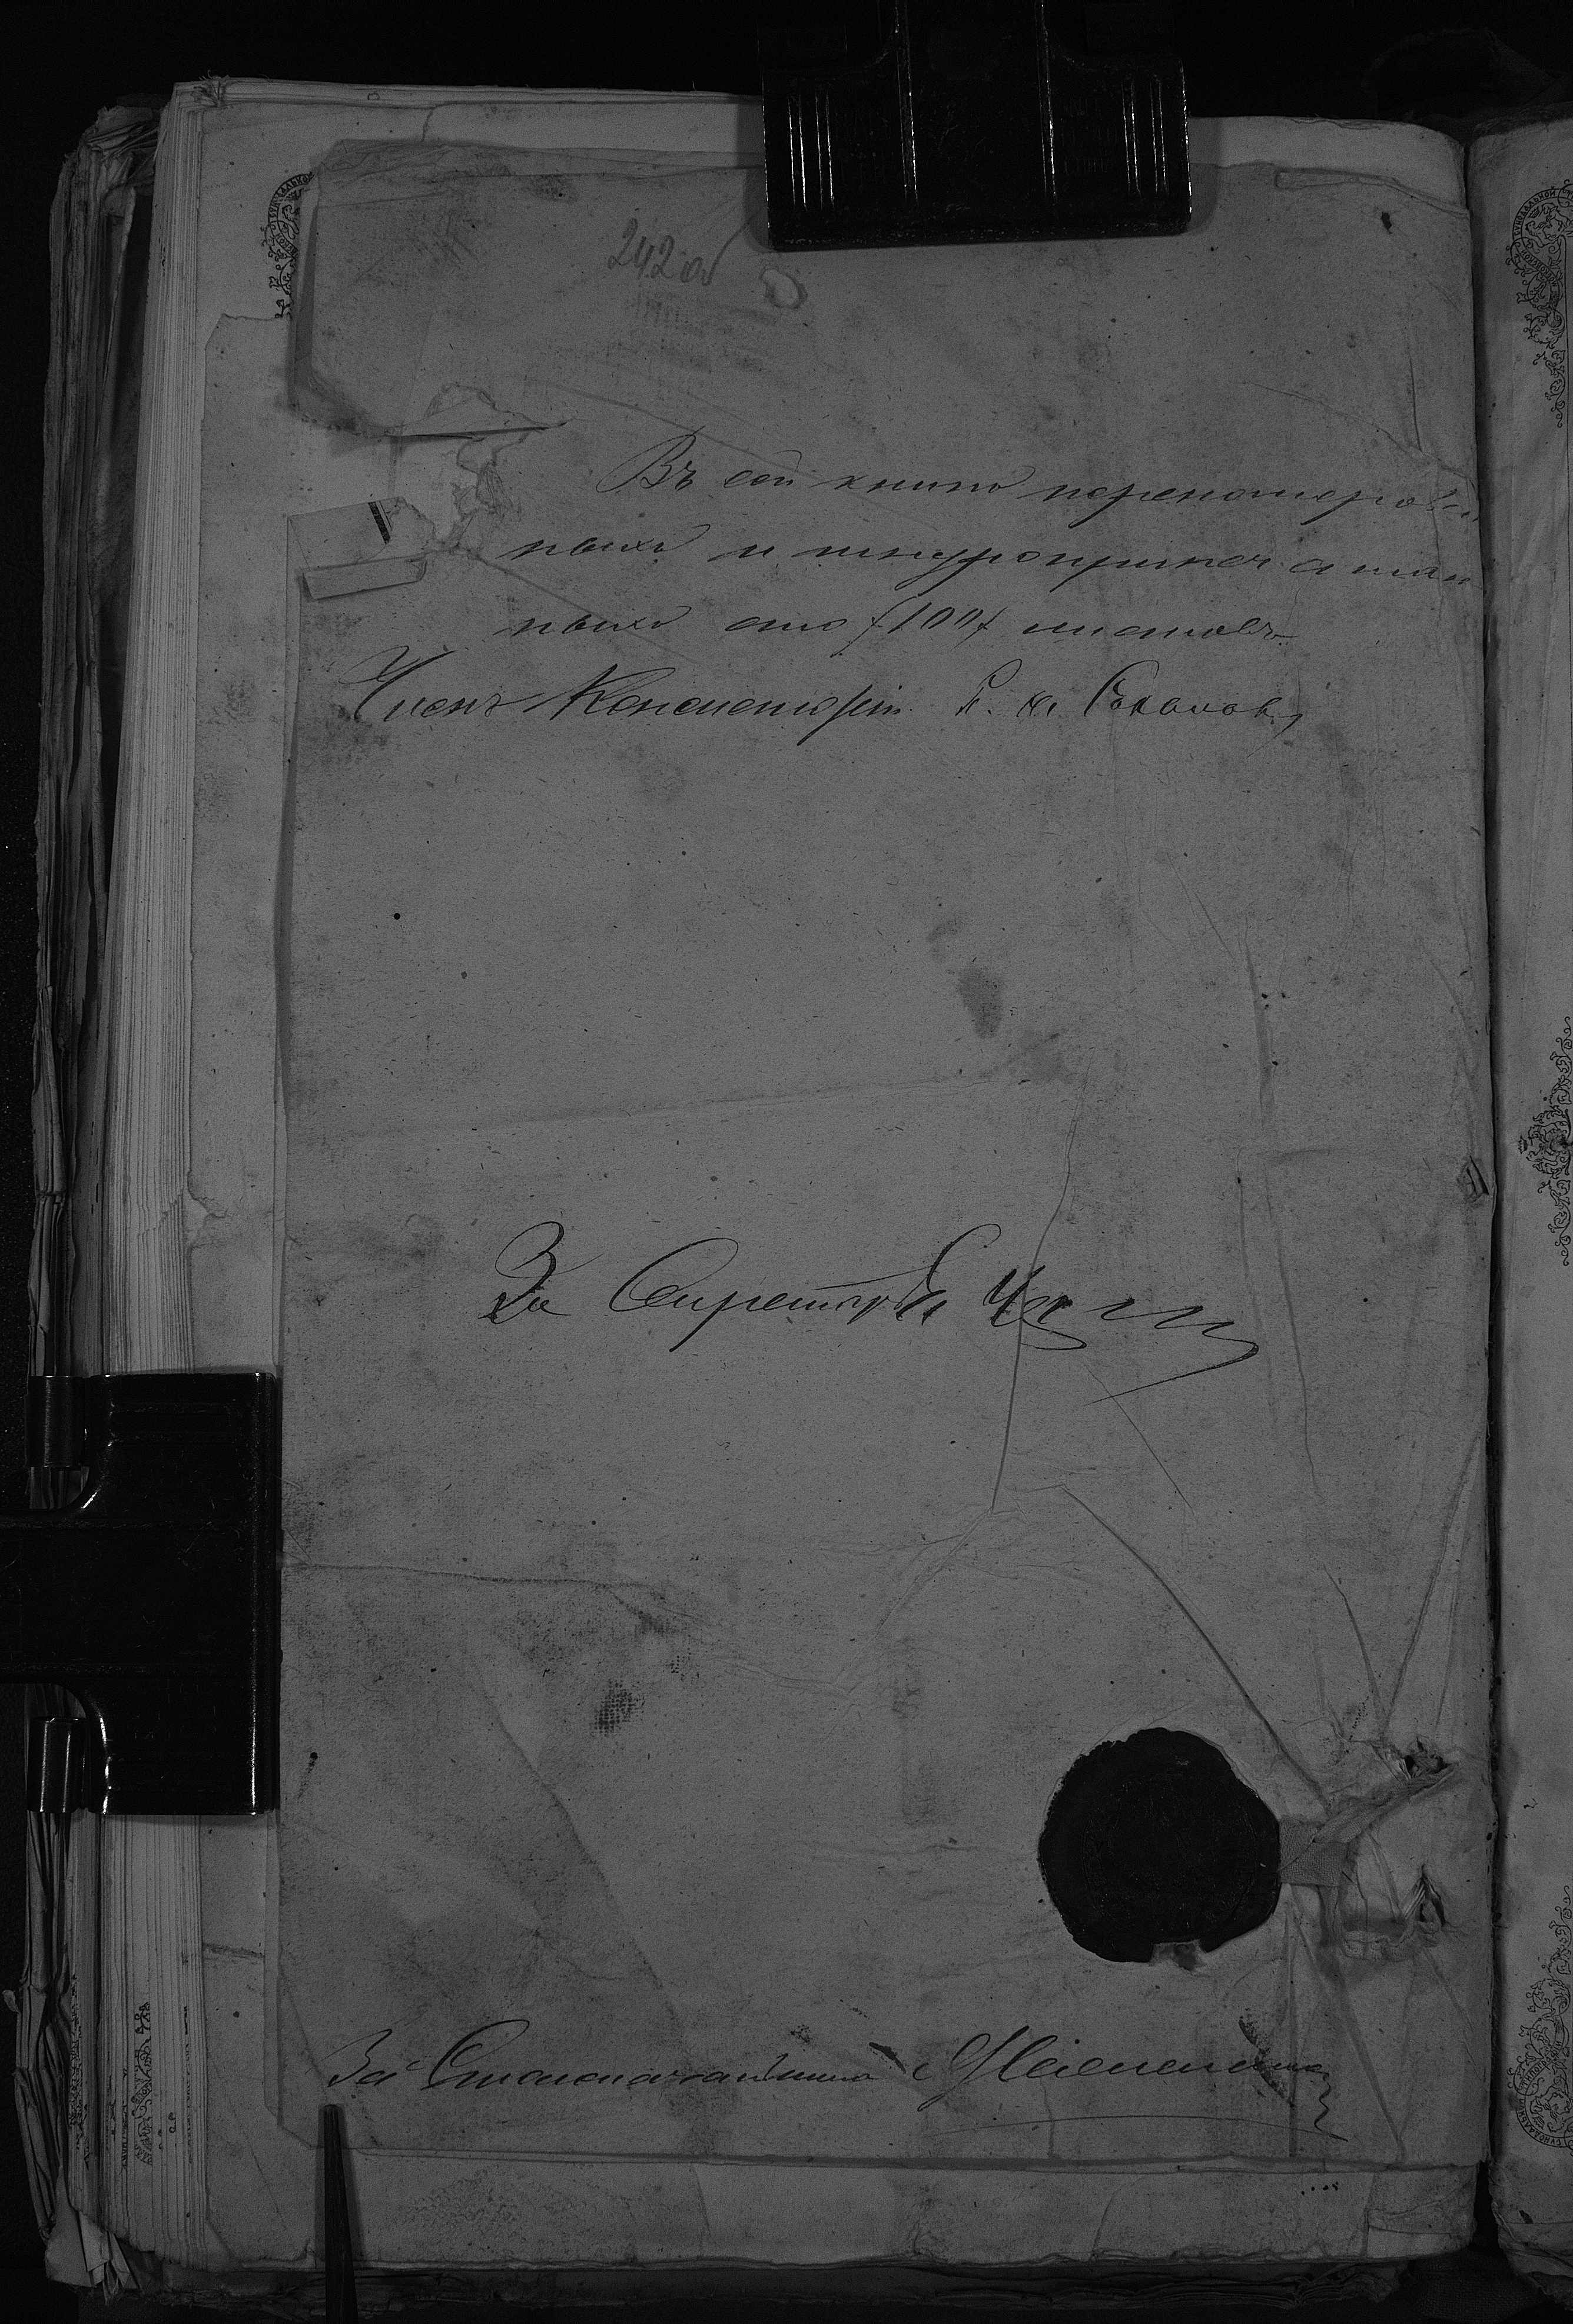 242 об
Въ сей книгѣ перенумерован
ныхъ и шнуроприпечатан
ныхъ сто /100/ листовъ
Членъ Консисторіи
За Секретаря
За Столоначальника